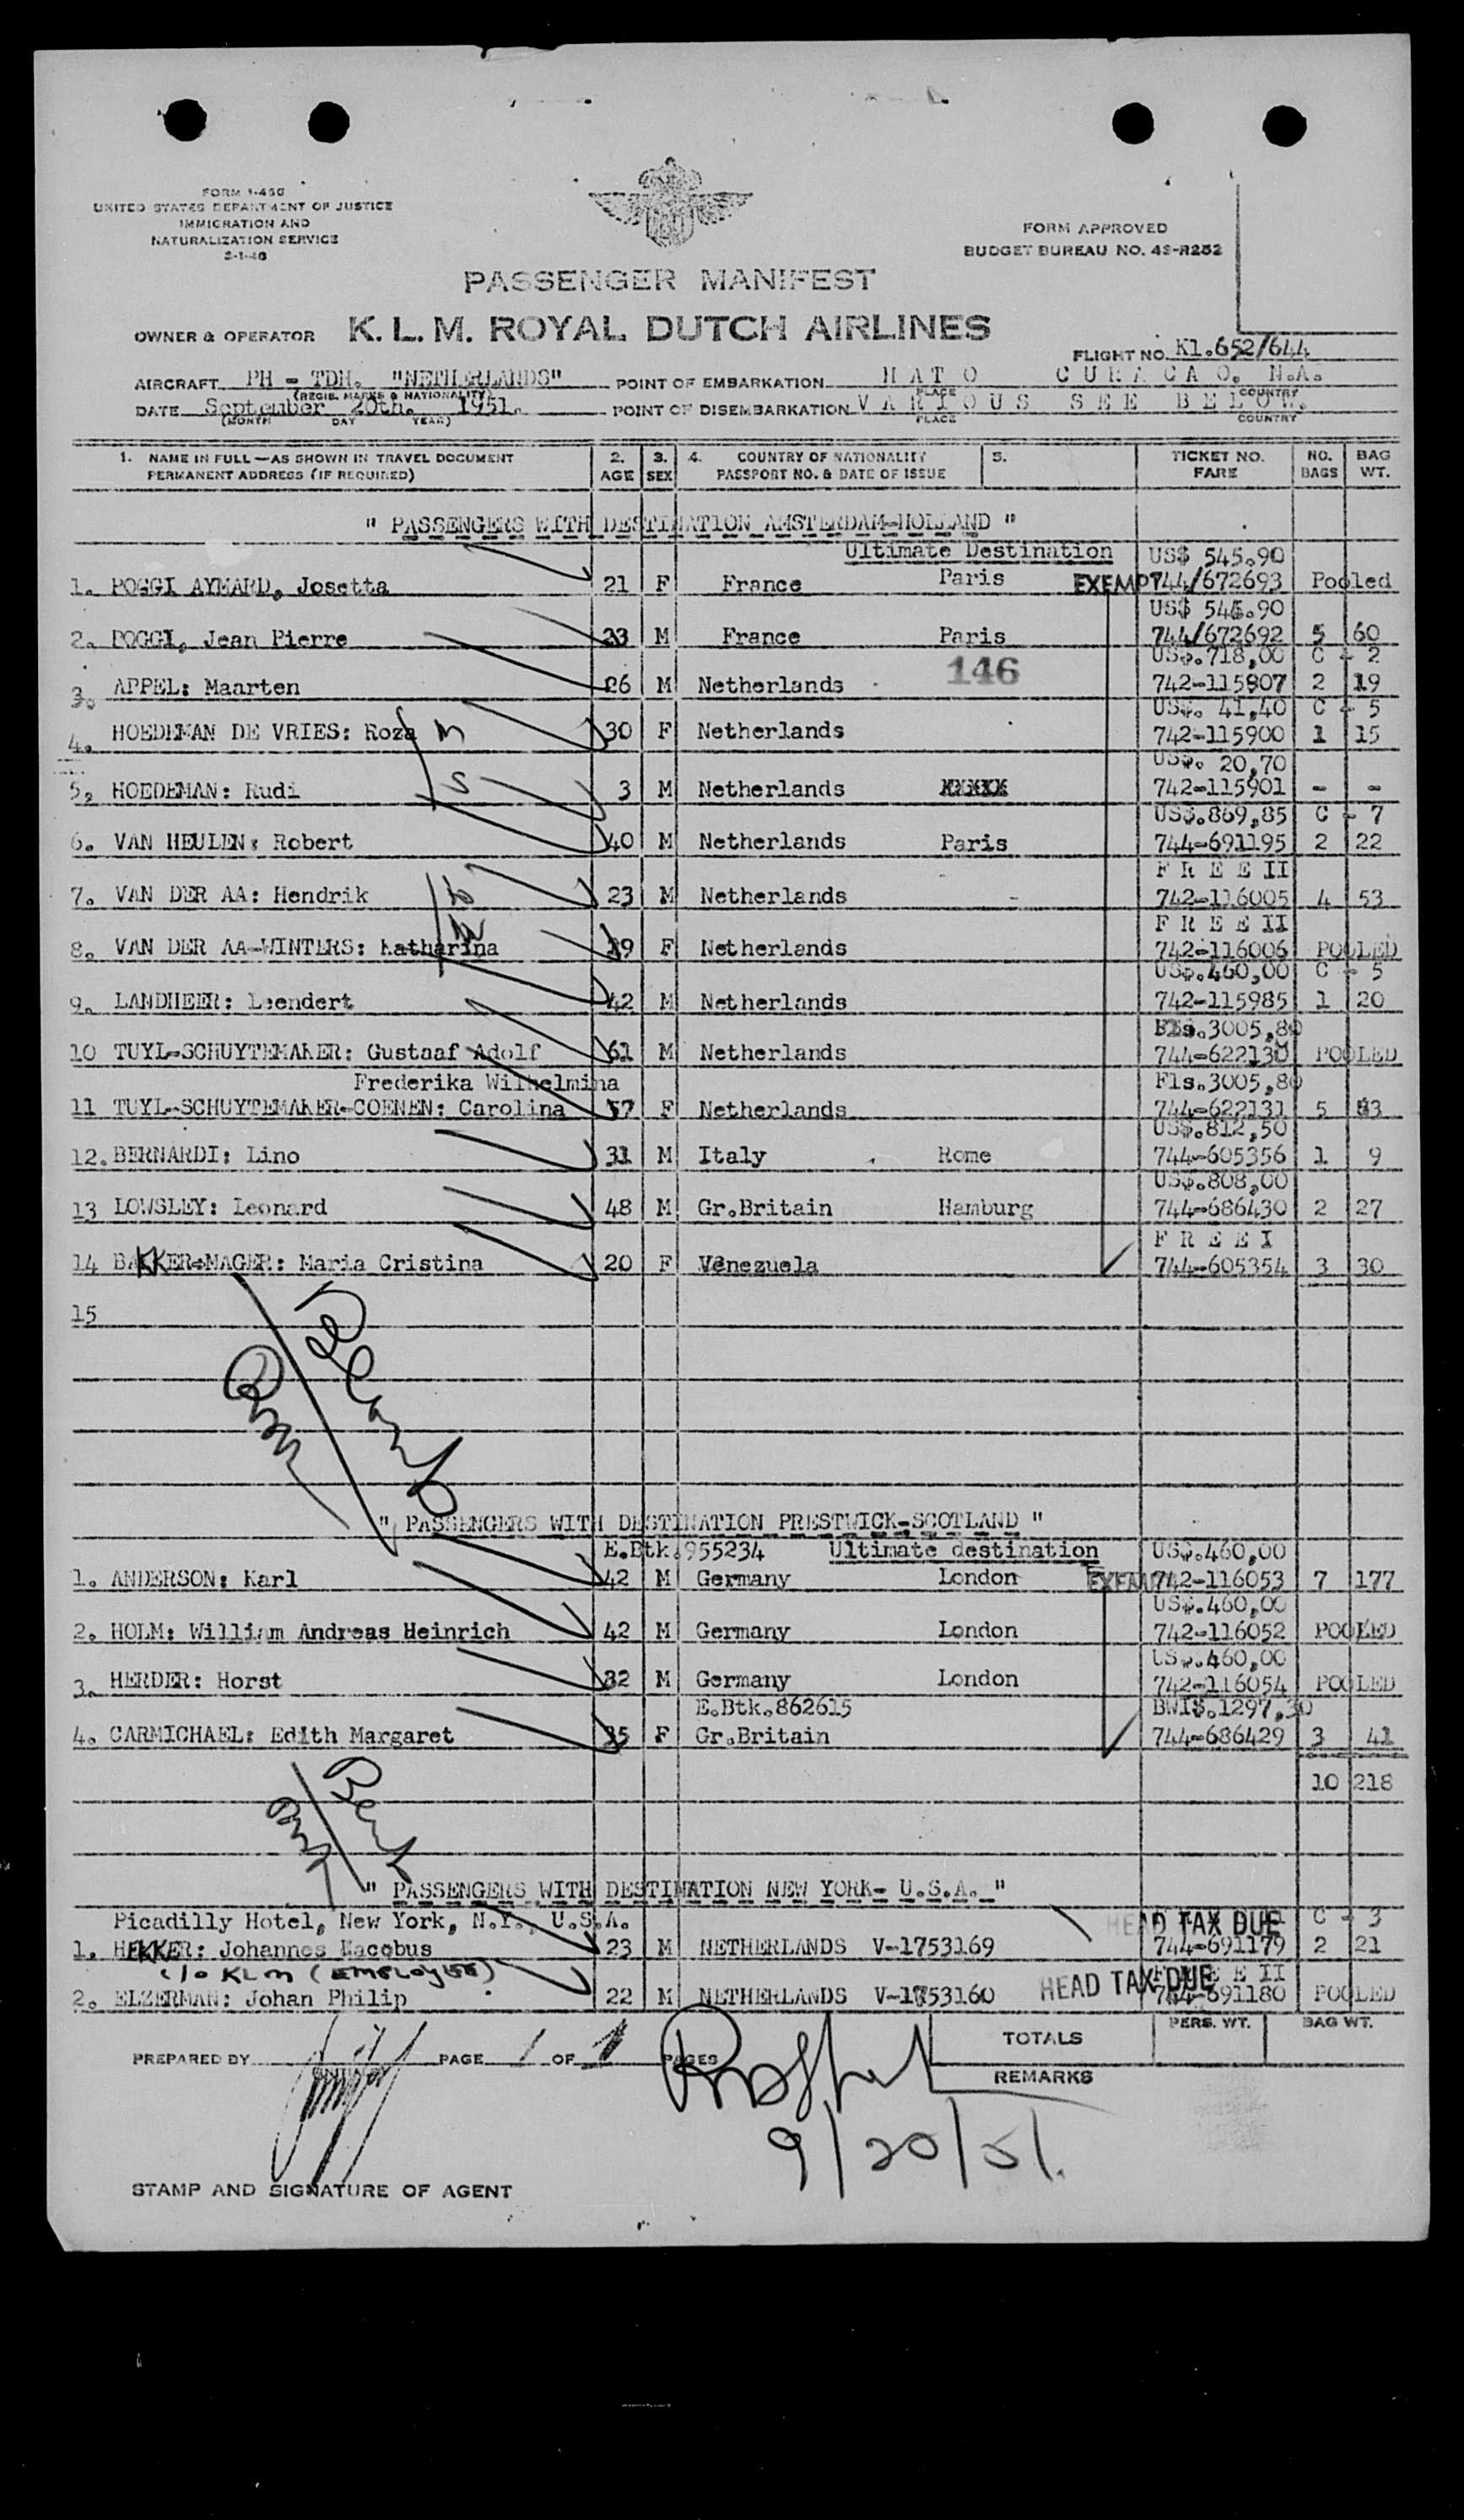 FORM I-466
UNITED STATES DEPARTMENT OF JUSTICE
IMMIGRATION AND
NATURALIZATION SERVICE
FORM APPROVED
BUDGET BUREAU NO. 43-R252
PASSENGER MANIFEST
OWNER & OPERATOR K. L. M. ROYAL DUTCH AIRLINES
FLIGHT NO. Kl.652/644
AIRCRAFT PH - TDH. "NETHERLANDS" POINT OF EMBARKATION H A T O C U R A C A O. N.A.
(REGIS. MARKS & NATIONALITY) PLACE COUNTRY
DATE September 20th. 1951. POINT OF DISEMBARKATION V A R I O U S S E E B E L O W.
(MONTH DAY YEAR) PLACE COUNTRY
1. NAME IN FULL—AS SHOWN IN TRAVEL DOCUMENT 2. 3. 4. COUNTRY OF NATIONALITY 5. TICKET NO. NO. BAG
PERMANENT ADDRESS (IF REQUIRED) AGE SEX PASSPORT NO. & DATE OF ISSUE FARE BAGS WT.
" PASSENGERS WITH DESTINATION AMSTERDAM-HOLLAND "
Ultimate Destination US$ 545.90
1. POGGI AYMARD, Josetta 21 F France Paris EXEMPT 744/672693 Pooled
US$ 545.90
2. POGGI, Jean Pierre 23 M France Paris 744/672692 5 60
146 US$.718,00 C - 2
3. APPEL: Maarten 26 M Netherlands 742-115807 2 19
US$. 41,40 C - 5
4. HOEDEMAN DE VRIES: Roza m 30 F Netherlands 742-115900 1 15
US$. 20,70
5, HOEDEMAN: Rudi s 3 M Netherlands XXXXX 742-115901 - -
US$.869,85 C - 7
6. VAN HEULEN: Robert 40 M Netherlands Paris 744-691195 2 22
F R E E II
7. VAN DER AA: Hendrik 23 M Netherlands 742-116005 4 53
F R E E II
8. VAN DER AA-WINTERS: Katharina 19 F Netherlands 742-116006 POOLED
US$.460,00 C - 5
9. LANDHEER: Leendert 42 M Netherlands 742-115985 1 20
Fls.3005,80
10 TUYL-SCHUYTEMAKER: Gustaaf Adolf 61 M Netherlands 744-622130 POOLED
Frederika Wilhelmina Fls.3005,80
11 TUYL-SCHUYTEMAKER-COENEN: Carolina 57 F Netherlands 744-622131 5 53
US$.812,50
12. BERNARDI: Lino 31 M Italy Rome 744-605356 1 9
US$.808,00
13 LOWSLEY: Leonard 48 M Gr.Britain Hamburg 744-686430 2 27
F R E E I
14 BAKKER-MAGER: Maria Cristina 20 F Venezuela 744-605354 3 30
15
" PASSENGERS WITH DESTINATION PRESTWICK-SCOTLAND "
E.Btk.955234 Ultimate destination US$.460,00
1. ANDERSON: Karl 42 M Germany London EXEMPT 742-116053 7 177
US$.460,00
2. HOLM: William Andreas Heinrich 42 M Germany London 742-116052 POOLED
US$.460,00
3. HERDER: Horst 32 M Germany London 742-116054 POOLED
E.Btk.862615 BWI$.1297,30
4. CARMICHAEL: Edith Margaret 35 F Gr.Britain 744-686429 3 41
10 218
" PASSENGERS WITH DESTINATION NEW YORK- U.S.A. "
Picadilly Hotel, New York, N.Y., U.S.A. HEAD TAX DUE C - 3
1. HEKKER: Johannes Macobus 23 M NETHERLANDS V-1753169 744-691179 2 21
c/o KLM (EMPLOYEE) HEAD TAX DUE F R E E II
2. ELZERMAN: Johan Philip 22 M NETHERLANDS V-1753160 744-691180 POOLED
PERS. WT. BAG WT.
TOTALS
PREPARED BY PAGE 1 OF 1 PAGES
REMARKS
9/20/51.
STAMP AND SIGNATURE OF AGENT